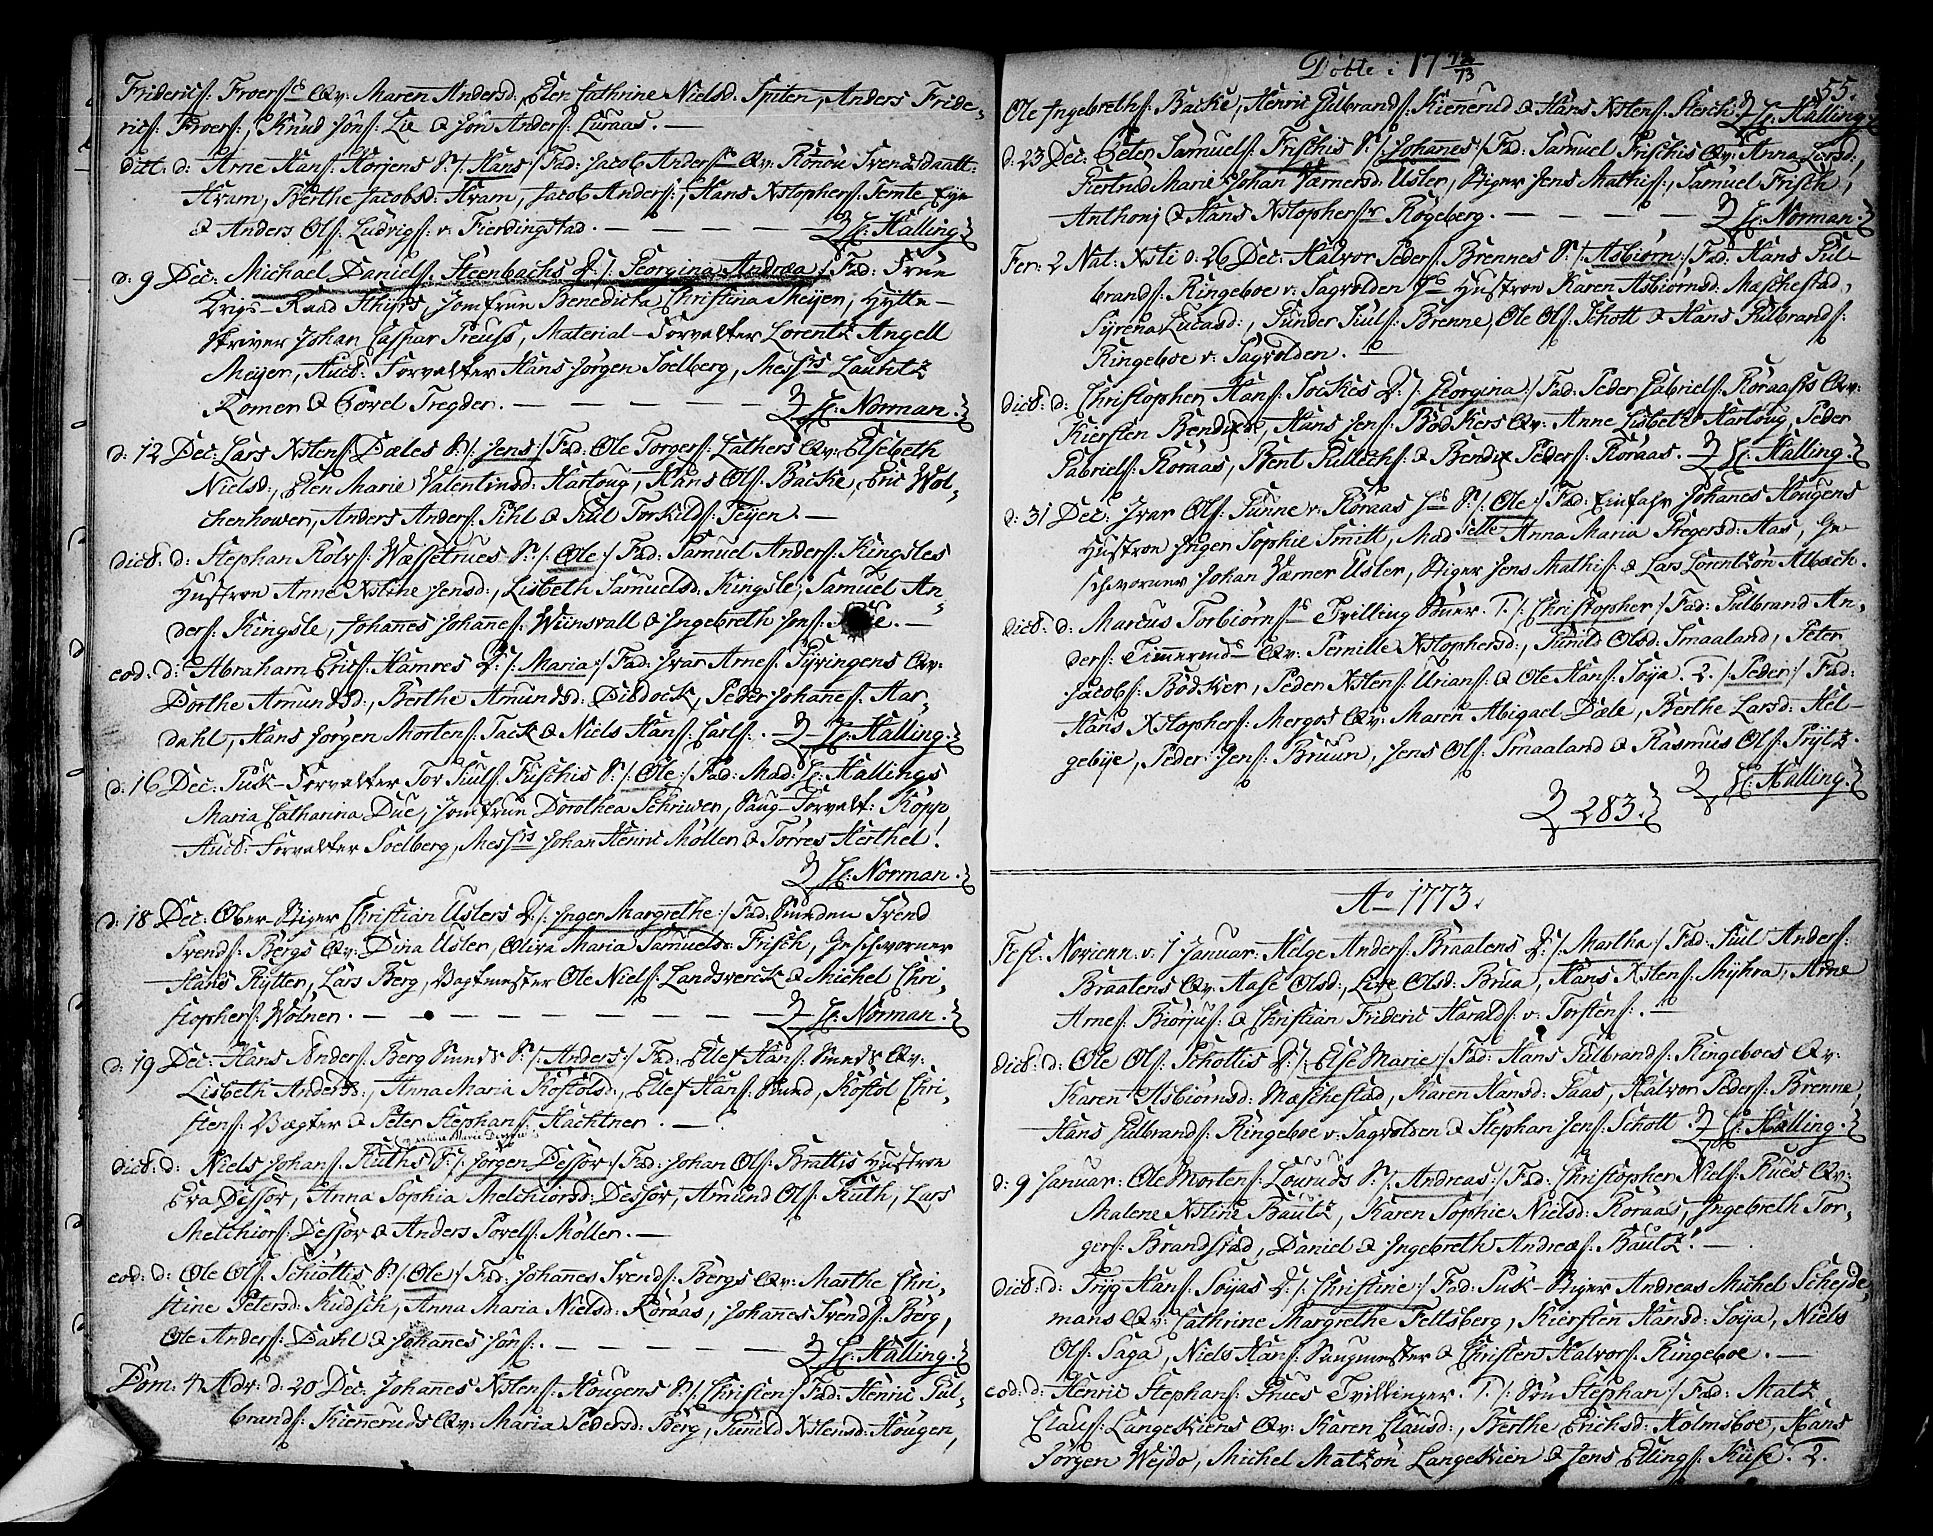 Fridericſ: Froerſ:s Qv: Maren Andersd: Elen Cathrine Nielsd: Spiten, Anders Fride-
ricſ: Froerſ:, Knud Jonſ: Lie & Jon Anderſ: Luraas. —
ditt. d: Arne Hanſ: Korjens S: /: Hans :/ Fad: Jacob Anderſ: Qv: Ronou Svendsdaatt:
Hram, Berthe Jacobsd: Hram, Jacob Anderſ:, Hans Xstopherſ: Temte Eye
& Anders Olſ: Ludvigſ: v: Fierdingstad. — H: Halling.
d: 9 Dec: Michael Danielſ: Steenbachs D: /: Georgina Andræa :/ Fad: Frue
Krigs-Raad Thijrs, Jomfrue Benedicta Christina Meijer, Hytte-
skriver Johan Caspar Preuss, Material-Forvalter Lorentz Angell
Meijer, Auc8: Forvalter Hans Jørgen Soelberg, Messrs Lauritz
Romer & Povel Tregder. — H: Norman.
d: 12 Dec: Lars Xstenſ: Dæles S: /: Jens :/ Fad: Ole Torgerſ: Lathers Qv: Elsebeth
Nielsd:, Elen Marie Valentinsd: Hartoug, Hans Olſ: Backe, Eric Wol-
chenhower, Anders Anderſ: Pihl & Juul Torkildſ: Teijen. —
dic8: d: Stephan Rolvſ: Wæssetrues S: /: Ole :/ Fad: Samuel Anderſ: Kingsles
Hustroe Anne Xstine Jensd:, Lisbeth Samuelsd: Kingsle, Samuel An-
derſ: Kingsle, Johanes Johaneſ: Wiinsvall & Ingebreth Jenſ: . —
eod: d: Abraham Ericſ: Hamres D: /: Maria :/ Fad: Ivar Arneſ: Gyringens Qv:
Dorthe Amundsd:, Berthe Amundsd: Dildock, Peder Johaneſ: Aar-
dahl, Hans Jørgen Mortenſ: Tack & Niels Hanſ: Carlſ:. — H: Halling.
d: 16 Dec: Puk-Forvalter Tor Juulſ: Fuschis S: /: Ole :/ Fad: Mad: H: Hallings
Maria Catharina Due, Jomfrue Dorothea Schriwer, Saug-Forvalt: Kopp,
Auc8: Forvalter Soelberg, Messrs Johan Henric Møller & Torres Herthel.
H: Norman.
d: 18 Dec: Ober-Stiger Christian Uslers D: /: Inger Margrethe :/ Fad: Smeden Svend
Svendſ: Bergs Qv: Dina Usler, Oliva Maria Samuelsd: Frisch, Geschworner
Hans Rytter, Lars Berg, Vagtmester Ole Nielſ: Landsverck & Michel Chri-
stopherſ: Wolner. — H: Norman.
d: 19 Dec: Hans Anderſ: Berg Smeds S: /: Anders :/ Fad: Ellef Hanſ: Smeds Qv:
Lisbeth Andersd:, Anna Maria Rostolsd:, Ellef Hanſ: Smed, Rostol Chri-
stenſ: Vægter & Peter Stephanſ: Hachtner. —
dic8: d: Niels Johanſ: Ruths S: /: Jørgen Dessor :/ Fad: Johan Olſ: Brattis Hustroe
Eva Dessor, Anna Sophia Melchiorsd: Dessor, Amund Olſ: Ruth, Lars
Melchiorſ: Dessor & Anders Povelſ: Møller. —
eod: d: Ole Olſ: Schiottis S: /: Ole :/ Fad: Johanes Svendſ: Bergs Qv: Marthe Chri-
stine Petersd: Kudsch, Anna Maria Nielsd: Roraas, Johanes Svendſ: Berg,
Ole Anderſ: Dahl & Johanes Jonſ:. — H: Halling.
Dom: 4 Adv: d: 20 Dec: Johanes Xstenſ: Hougens S: /: Christen :/ Fad: Henric Gul-
brandſ: Kieneruds Qv: Maria Pedersd: Berg, Gunild Xstensd: Hougen,
Døbte i 1772/73
55.
Ole Ingebrethſ: Backe, Henric Gulbrandſ: Kienerud & Hans Xstenſ: Sterch. H: Halling.
d: 23 Dec: Peter Samuelſ: Frischis S: /: Johanes :/ Fad: Samuel Frischis Qv: Anna Larsd:,
Giertrud Marie Johan Værnersd: Usler, Stiger Jens Mathisſ:, Samuel Frisch,
Anthonj & Hans Xstopherſ:r Rogeberg. — H: Norman.
Fer: 2 Nat: Xsti d: 26 Dec: Halvor Pederſ: Brennes S: /: Asbiørn :/ Fad: Hans Gul-
brandſ: Ringeboe v: Sagvolden Js Hustroe Karen Asbiørnsd: Mæschestad,
Syrena Lucasd:, Gunder Juulſ: Brenne, Ole Olſ: Schott & Hans Gulbrandſ:
Ringeboe v: Sagvolden. —
dic8: d: Christopher Hanſ: Sockes D: /: Georgina :/ Fad: Peder Gabrielſ: Roraasis Qv:
Kiersten Bendixd:, Hans Jenſ: Bødkers Qv: Anne Lisbeth Hartoug, Peder
Gabrielſ: Roraas, Bent Gullechſ: & Bendix Pederſ: Roraas. H: Halling.
d: 31 Dec: Ivar Olſ: Gunne v: Roraas Js S: /: Ole :/ Fad: Einfahr Johanes Hougens
Hustroe Inger Sophie Smitt, Madselle Anna Maria Gregersd: Aas, Ge-
schworner Johan Værner Usler, Stiger Jens Mathisſ: & Lars Lorentzøn Albech.
dic8: d: Marcus Torbiørnſ:s Tvilling Søner. 1. /: Christopher :/ Fad: Gulbrand An-
derſ: Timeruds Qv: Pernille Xstophersd:, Gunild Olsd: Smaaland, Peter
Jacobſ: Bødker, Peder Xstenſ: Urianſ: & Ole Hanſ: Soija. 2. /: Peder :/ Fad:
Hans Xstopherſ: Mergos Qv: Maren Abigael Dæle, Berthe Larsd: Hel-
gebije, Peder Jenſ: Bruun, Jens Olſ: Smaaland & Rasmus Olſ: Prijtz.
H: Halling.
283.
Ao 1773.
Fest: Novi ann. v: 1 Januar: Helge Anderſ: Braatens D: /: Martha :/ Fad: Juul Anderſ:
Braatens Qv: Aase Olsd:, Live Olsd: Brua, Hans Xstenſ: Myhra, Arne
Arneſ: Biorjuſ: & Christian Frideric Haraldſ: v: Forstenſ:. —
dic8: d: Ole Olſ: Schottis D: /: Else Marie :/ Fad: Hans Gulbrandſ: Ringeboes Qv:
Karen Asbiørnsd: Mæschestad, Karen Hansd: Saas, Halvor Pederſ: Brenne,
Hans Gulbrandſ: Ringeboe v: Sagvolden & Stephan Jenſ: Schott. H: Halling.
d: 9 Januar: Ole Mortenſ: Louruds S: /: Andreas :/ Fad: Christopher Nielſ: Rues Qv:
Malene Xstine Bautz, Karen Sophie Nielsd: Roraas, Ingebreth Tor-
gerſ: Brandstad, Daniel & Ingebreth Andreæſ: Bautz. —
dic8: d: Tryg Hanſ: Soijas D: /: Christine :/ Fad: Puk-Stiger Andreas Michel Schejde-
mans Qv: Cathrine Margrethe Feltsberg, Kiersten Hansd: Soija, Niels
Olſ: Saga, Niels Hanſ: Saugmester & Christen Halvorſ: Ringeboe. —
eod: d: Henric Stephanſ: Prues Tvillinger. 1. /: Søn Stephan :/ Fad: Matz
Clausſ: Langekiens Qv: Karen Clausd:, Berthe Erichsd: Holmsboe, Hans
Jørgen Wejdo, Michel Matzøn Langekien & Jens Ellingſ: Kuse. 2.